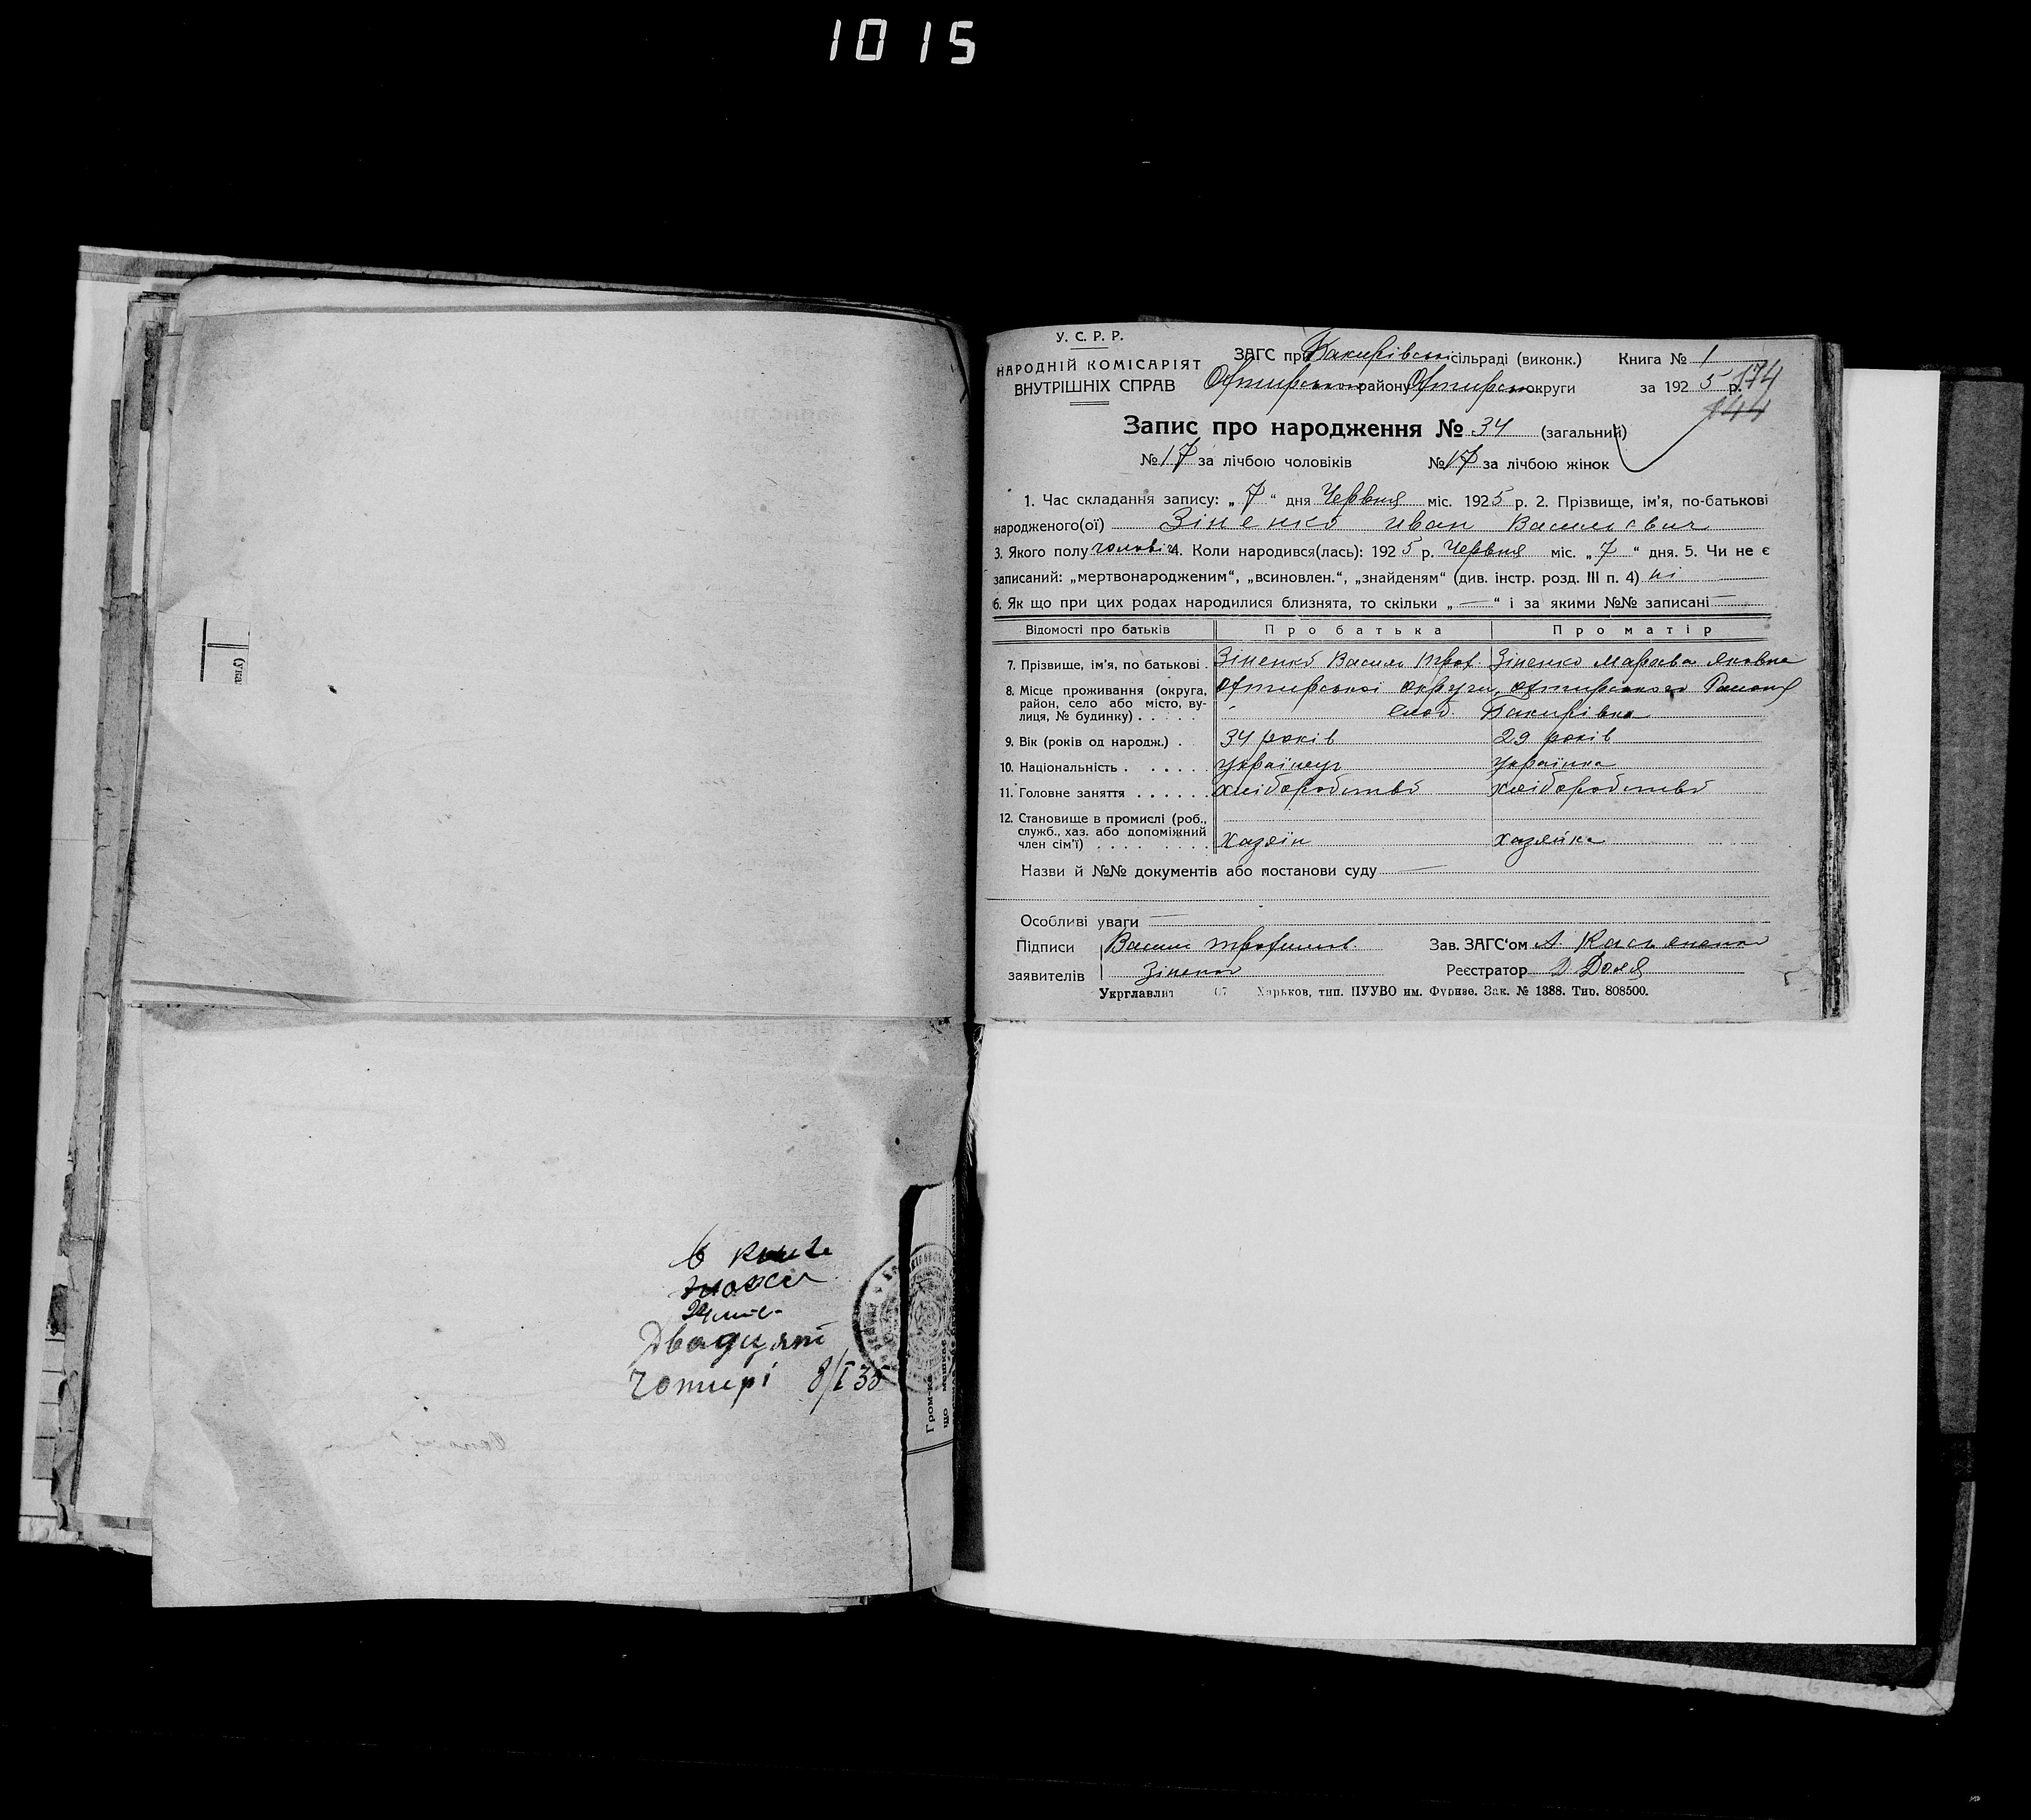 1015
(ука
Двадцять
чотирі 8/I 35
Гром-
що мешкає
У. С. Р. Р.
НАРОДНІЙ КОМІСАРІЯТ
ВНУТРІШНІХ СПРАВ
ЗАГС при Бакирівській сільраді (виконк.) Книга № 1
Охтирського району Охтирсько округи за 1925 р. 174
144
Запис про народження № 34 (загальний)
№ 17 за лічбою чоловіків № 17 за лічбою жінок
1. Час складання запису: „ 7 “ дня Червня міс. 1925 р. 2. Прізвище, ім’я, по-батькові
народженого(ої) Зіненко Иван Васильєвич
3. Якого полу чоловіч 4. Коли народився(лась): 1925 р. Червня міс. „ 7 “ дня. 5. Чи не є
записаний: „мертвонародженим“, „всиновлен.“, „знайденям“ (див. інстр. розд. III п. 4) ні
6. Як що при цих родах народилися близнята, то скільки „ — “ і за якими №№ записані —
Відомості про батьків Про батька Про матір
7. Прізвище, ім’я, по батькові . Зіненко Васил Троф. Зіненко Яковна
8. Місце проживання (округа, Охтирської округи, Охтирського Району
район, село або місто, ву- слоб. Бакирівка
лиця, № будинку) . . . . .
9. Вік (років од народж.) . 34 років 29 років
10. Національність . . . . . . українець українка
11. Головне заняття . . . . . . хліборобство хліборобство
12. Становище в промислі (роб.,
служб., хаз. або допоміжний
член сім’ї) . . . . . . . . Хазяїн Хазяйка
Назви й №№ документів або постанови суду —
Особливі уваги —
Підписи Васил Трофимов Зав. ЗАГС‘ом А. Касьяненко
заявителів Зіненко Реєстратор Д Доля
Укрглавліт 07 Харьков, тип. ПУУВО им. Фрунзе. Зак. № 1388. Тир. 808500.